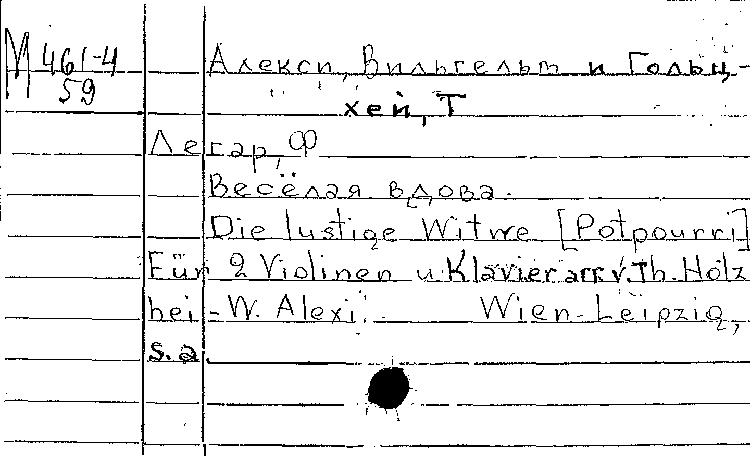 М 461-4
59
Алекси, Вильгельт и Гольц-
хей, Т
Легар, Ф
Весёлая вдова.
Die lustige Witwe [Potpourri]
Für 2 Violinen u. Klavier arr v. Th. Holz
hei - W. Alexi. Wien-Leipzig,
s. a.